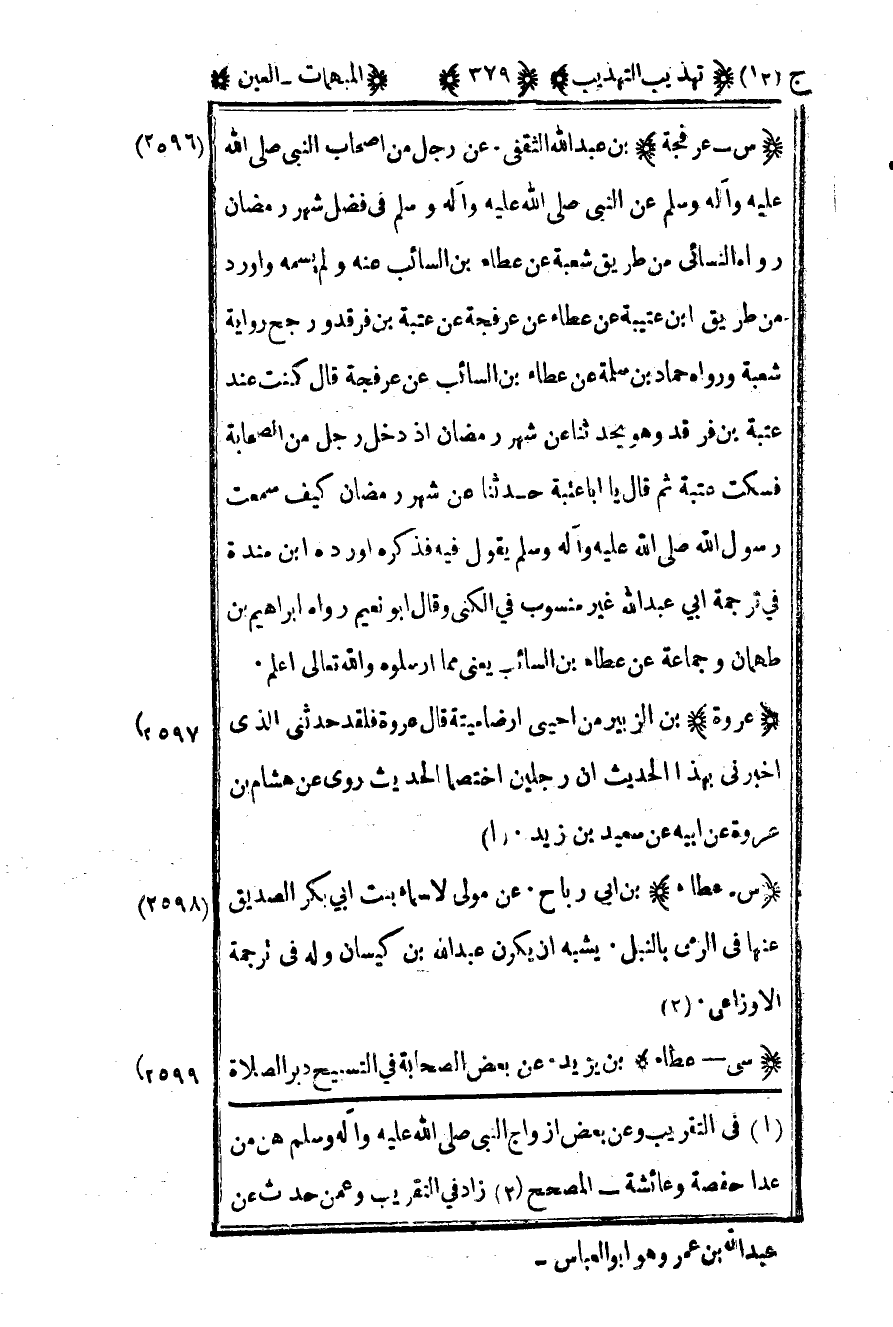 ج (١٢) ﴿ تهذيب التهذيب ﴾ ﴿ ٣٧٩ ﴾ ﴿ المبهمات ـ العين ﴾
﴿ س ــ عرفجة ﴾ بن عبدالله الثقفى ٠ عن رجل من اصحاب النبي صلى الله (٢٥٩٦)
عليه وآله وسلم عن النبي صلى الله عليه وآله وسلم فى فضل شهر رمضان
رواه النسائى من طريق شعبة عن عطاء بن السائب عنه ولم يسمه واورد
من طريق ابن عتيبة عن عطاء عن عرفجة عن عتبة بن فرقد ورجح رواية
شعبة ورواه حماد بن سلمة عن عطاء بن السائب عن عرفجة قال كنت عند
عتبة بن فرقد وهو يحدثنا عن شهر رمضان اذ دخل رجل من الصحابة
فسكت عتبة ثم قال يا ابا عتبة حدثنا عن شهر رمضان كيف سمعت
رسول الله صلى الله عليه وآله وسلم يقول فيه فذكره اورده ابن مندة
في ترجمة ابي عبدالله غير منسوب في الكنى وقال ابو نعيم رواه ابراهيم بن
طهمان وجماعة عن عطاء بن السائب يعنى مما ارسلوه والله تعالى اعلم ٠
﴿ عروة ﴾ بن الزبير من احيى ارضا ميتة قال عروة فلقد حدثنى الذى (٢٥٩٧
اخبرنى بهذا الحديث ان رجلين اختصما الحديث روى عن هشام بن
عروة عن ابيه عن سعيد بن زيد ٠ (١)
﴿ س ـ عطاء ﴾ بن ابي رباح ٠ عن مولى لاسماء بنت ابي بكر الصديق (٢٥٩٨)
عنها فى الرمى بالنبل ٠ يشبه ان يكرن عبدالله بن كيسان وله فى ترجمة
الاوزاعى ٠ (٢)
﴿ سى ـــ عطاء ﴾ بن يزيد ٠ عن بعض الصحابة في التسبيح دبر الصلاة (٢٥٩٩
(١) فى التقريب وعن بعض ازواج النبي صلى الله عليه وآله وسلم هن من
عدا حفصة وعائشة ــ المصحح (٢) زاد في التقريب وعمن حدث عن
عبدالله بن عمر وهو ابو العباس ــ